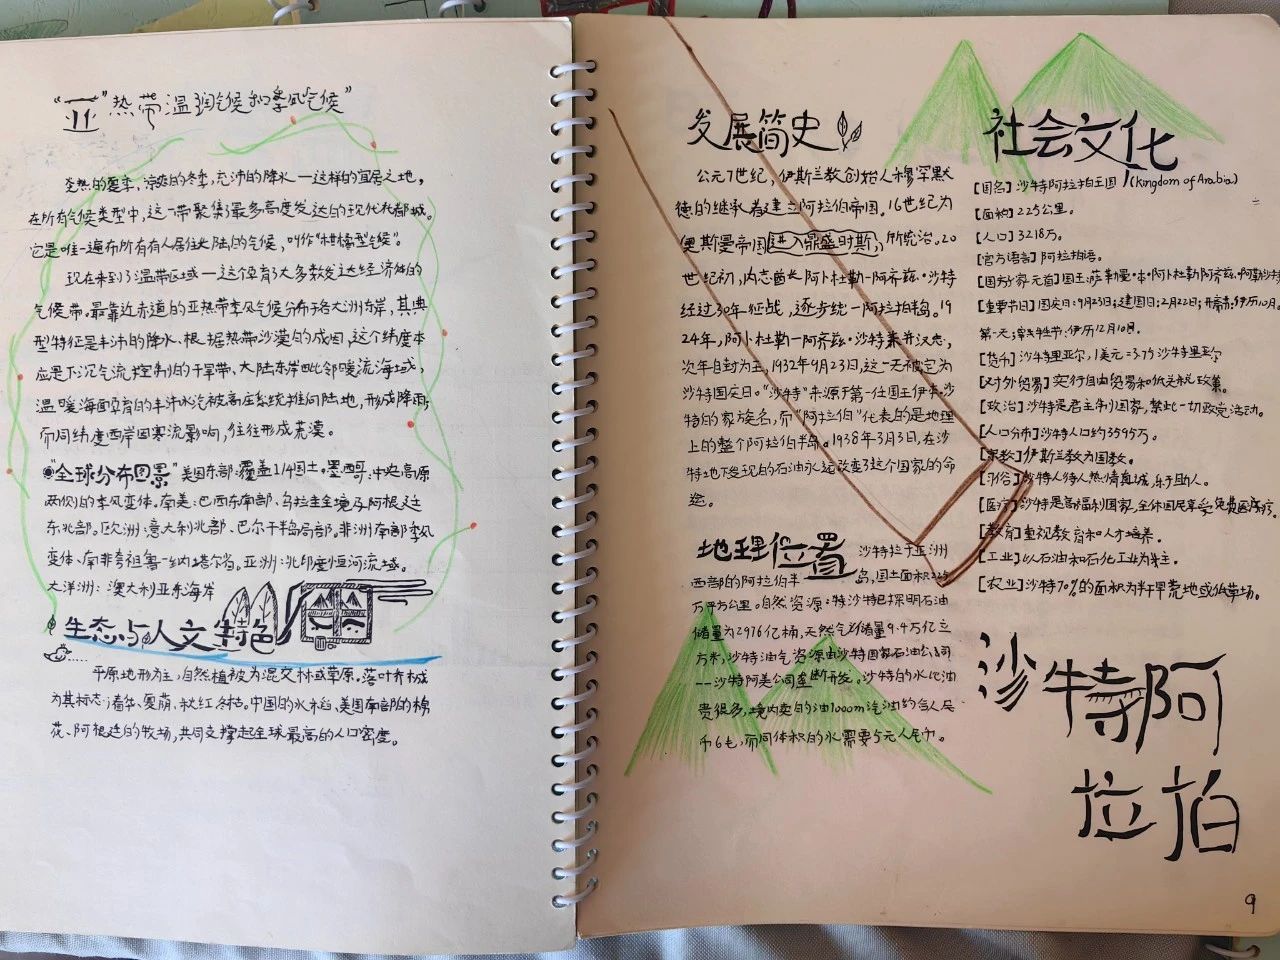 “亚”热带温润气候和季风气候”
炎热的夏季,凉爽的冬季,充沛的降水一这样的宜居之地,
在所有气候类型中,这一带聚集了最多高度发达的现代化都城。
它是唯一遍布所有有人居住大陆的气候,叫作“柑橘型气候”。
现在来到了温带区域一这个孕育了大多数发达经济体的
气候带。最靠近赤道的亚热带季风气候分布于各大洲东岸,其典
型特征是丰沛的降水、根据热带沙漠的成因,这个纬度本
应是下沉气流控制的干旱带、大陆东岸毗邻暖流海域,
温暖海面孕育的丰沛水汽被高压系统推向陆地,形成降雨;
而同纬度西岸因寒流影响,往往形成荒漠。
“全球分布图景”美国东部:覆盖1/4国土。墨西哥:中央高原
两侧的季风变体。南美:巴西东南部、乌拉圭全境及阿根廷
东北部。欧洲:意大利北部、巴尔干半岛局部。非洲南部季风
变体、南非夸祖鲁一纳塔尔省。亚洲:北印度恒河流域。
大洋洲:澳大利亚东海岸
生态与人文特色
平原地形为主,自然植被为混交林或草原。落叶乔木成
为其标志:春华、夏荫、秋红、冬枯。中国的水稻、美国南部的棉
花、阿根廷的牧场,共同支撑起全球最高的人口密度。
发展简史
公元7世纪,伊斯兰教创始人穆罕默
德的继承者建立阿拉伯帝国。16世纪为
奥斯曼帝国进入鼎盛时期,所统治。20
世纪初,内志酋长阿卜杜勒一阿齐兹·沙特
经过30年征战,逐步统一阿拉柏半岛。19
24年,阿卜杜勒一阿齐兹·沙特兼并汉志,
次年自封为王,1932年9月23日,这一天被定为
沙特国庆日。“沙特”来源于第一任国王伊本沙
特的家族名,而“阿拉伯”代表的是地理
上的整个阿拉伯半岛。1938年3月3日,在沙
特地下发现的石油永远改变了这个国家的命
运。
地理位置
沙特位于亚洲
西部的阿拉伯半岛,国土面积225
万平方公里。自然资源:特沙特已探明石油
储量为2976亿桶,天然气储量9.4万亿立
方米,沙特油气资源由沙特国家石油公司
——沙特阿美公司垄断开发。沙特的水比油
贵很多,境内卖的油1000m汽油约合人民
币6毛,而同体积的水需要5元人民币。
社会文化
[国名]沙特阿拉柏王国(kingdom of Arabia)
[面积]225公里。
[人口]3218万。
[官方语言]阿拉柏语。
[国家元首]国王:萨勒曼·本·阿卜杜勒阿齐兹·阿勒沙特
[重要节日]国庆日:9月23日;建国日:2月22日;开斋节:伊历10月
第一天;宰牲节:伊历12月10日。
[货币]沙特里亚尔,1美元=3.75沙特里亚尔
[对外贸易]实行自由贸易和低关税政策。
[政治]沙特是君主制国家,禁止一切政党活动。
[人口分布]沙特人口约3595万。
[宗教]伊斯兰教为国教。
[习俗]沙特人待人热情真诚,乐于助人。
[医疗]沙特是高福利国家,全体国民享受免费医疗。
[教育]重视教育和人才培养。
[工业]以石油和石化工业为主。
[农业]沙特70%的面积为半干旱荒地或低草场。
沙特阿
拉柏
9